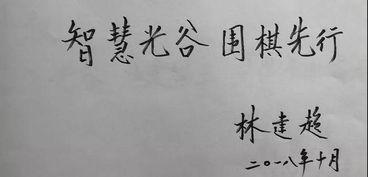 智慧光谷 围棋先行
林建超
二〇一八年十月